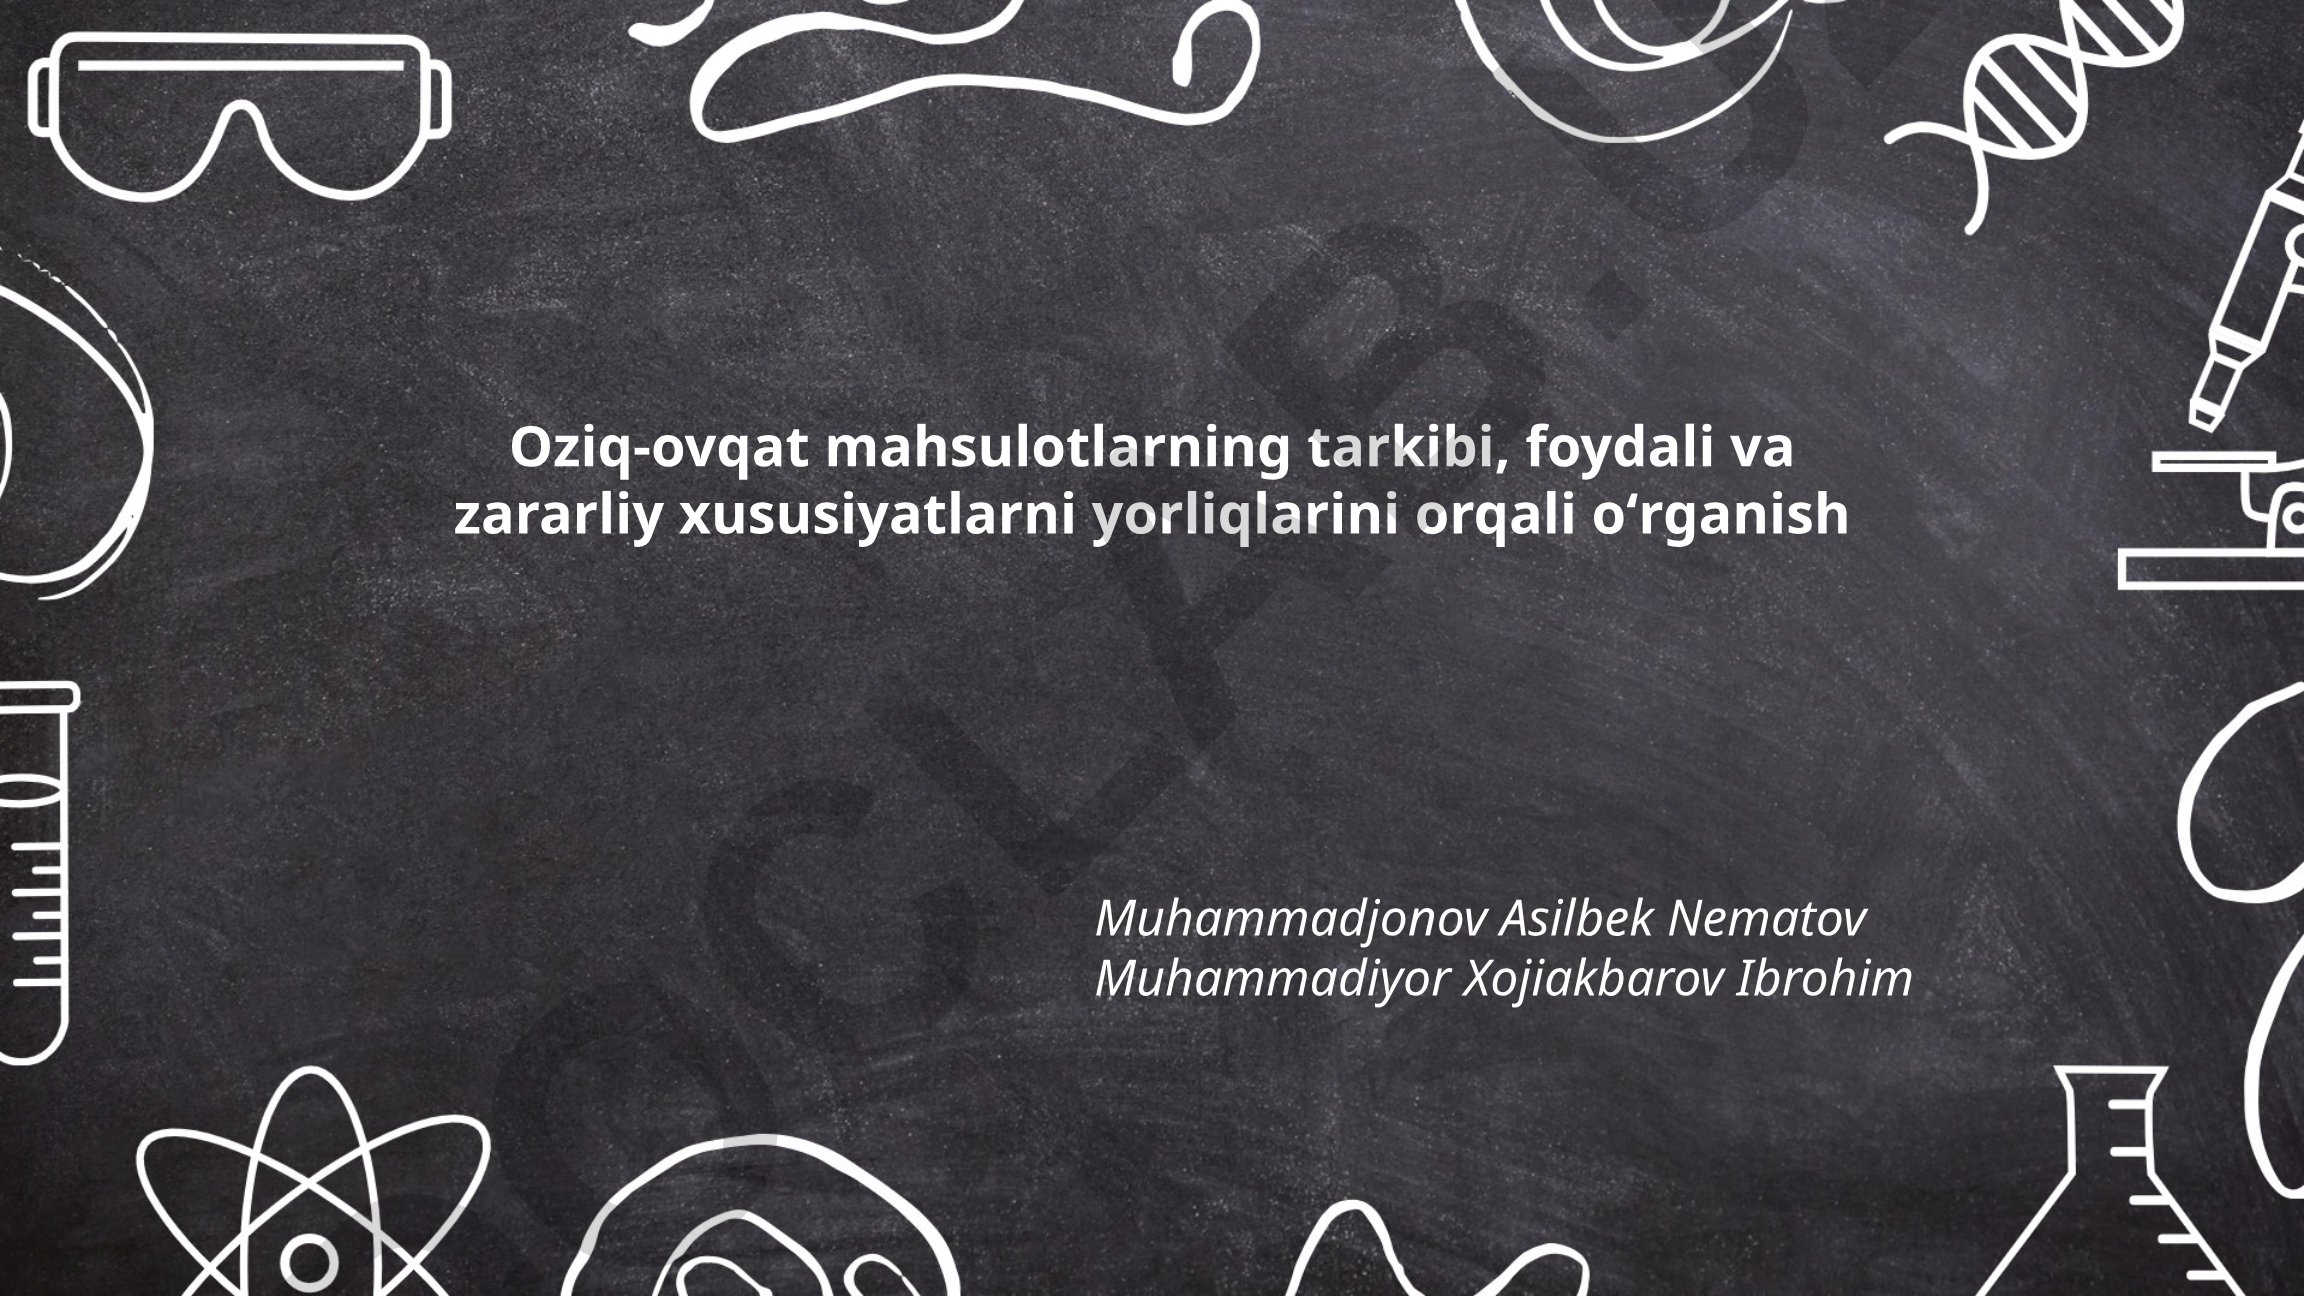 Oziq-ovqat mahsulotlarning tarkibi, foydali va
zararliy xususiyatlarni yorliqlarini orqali o‘rganish
Muhammadjonov Asilbek Nematov
Muhammadiyor Xojiakbarov Ibrohim